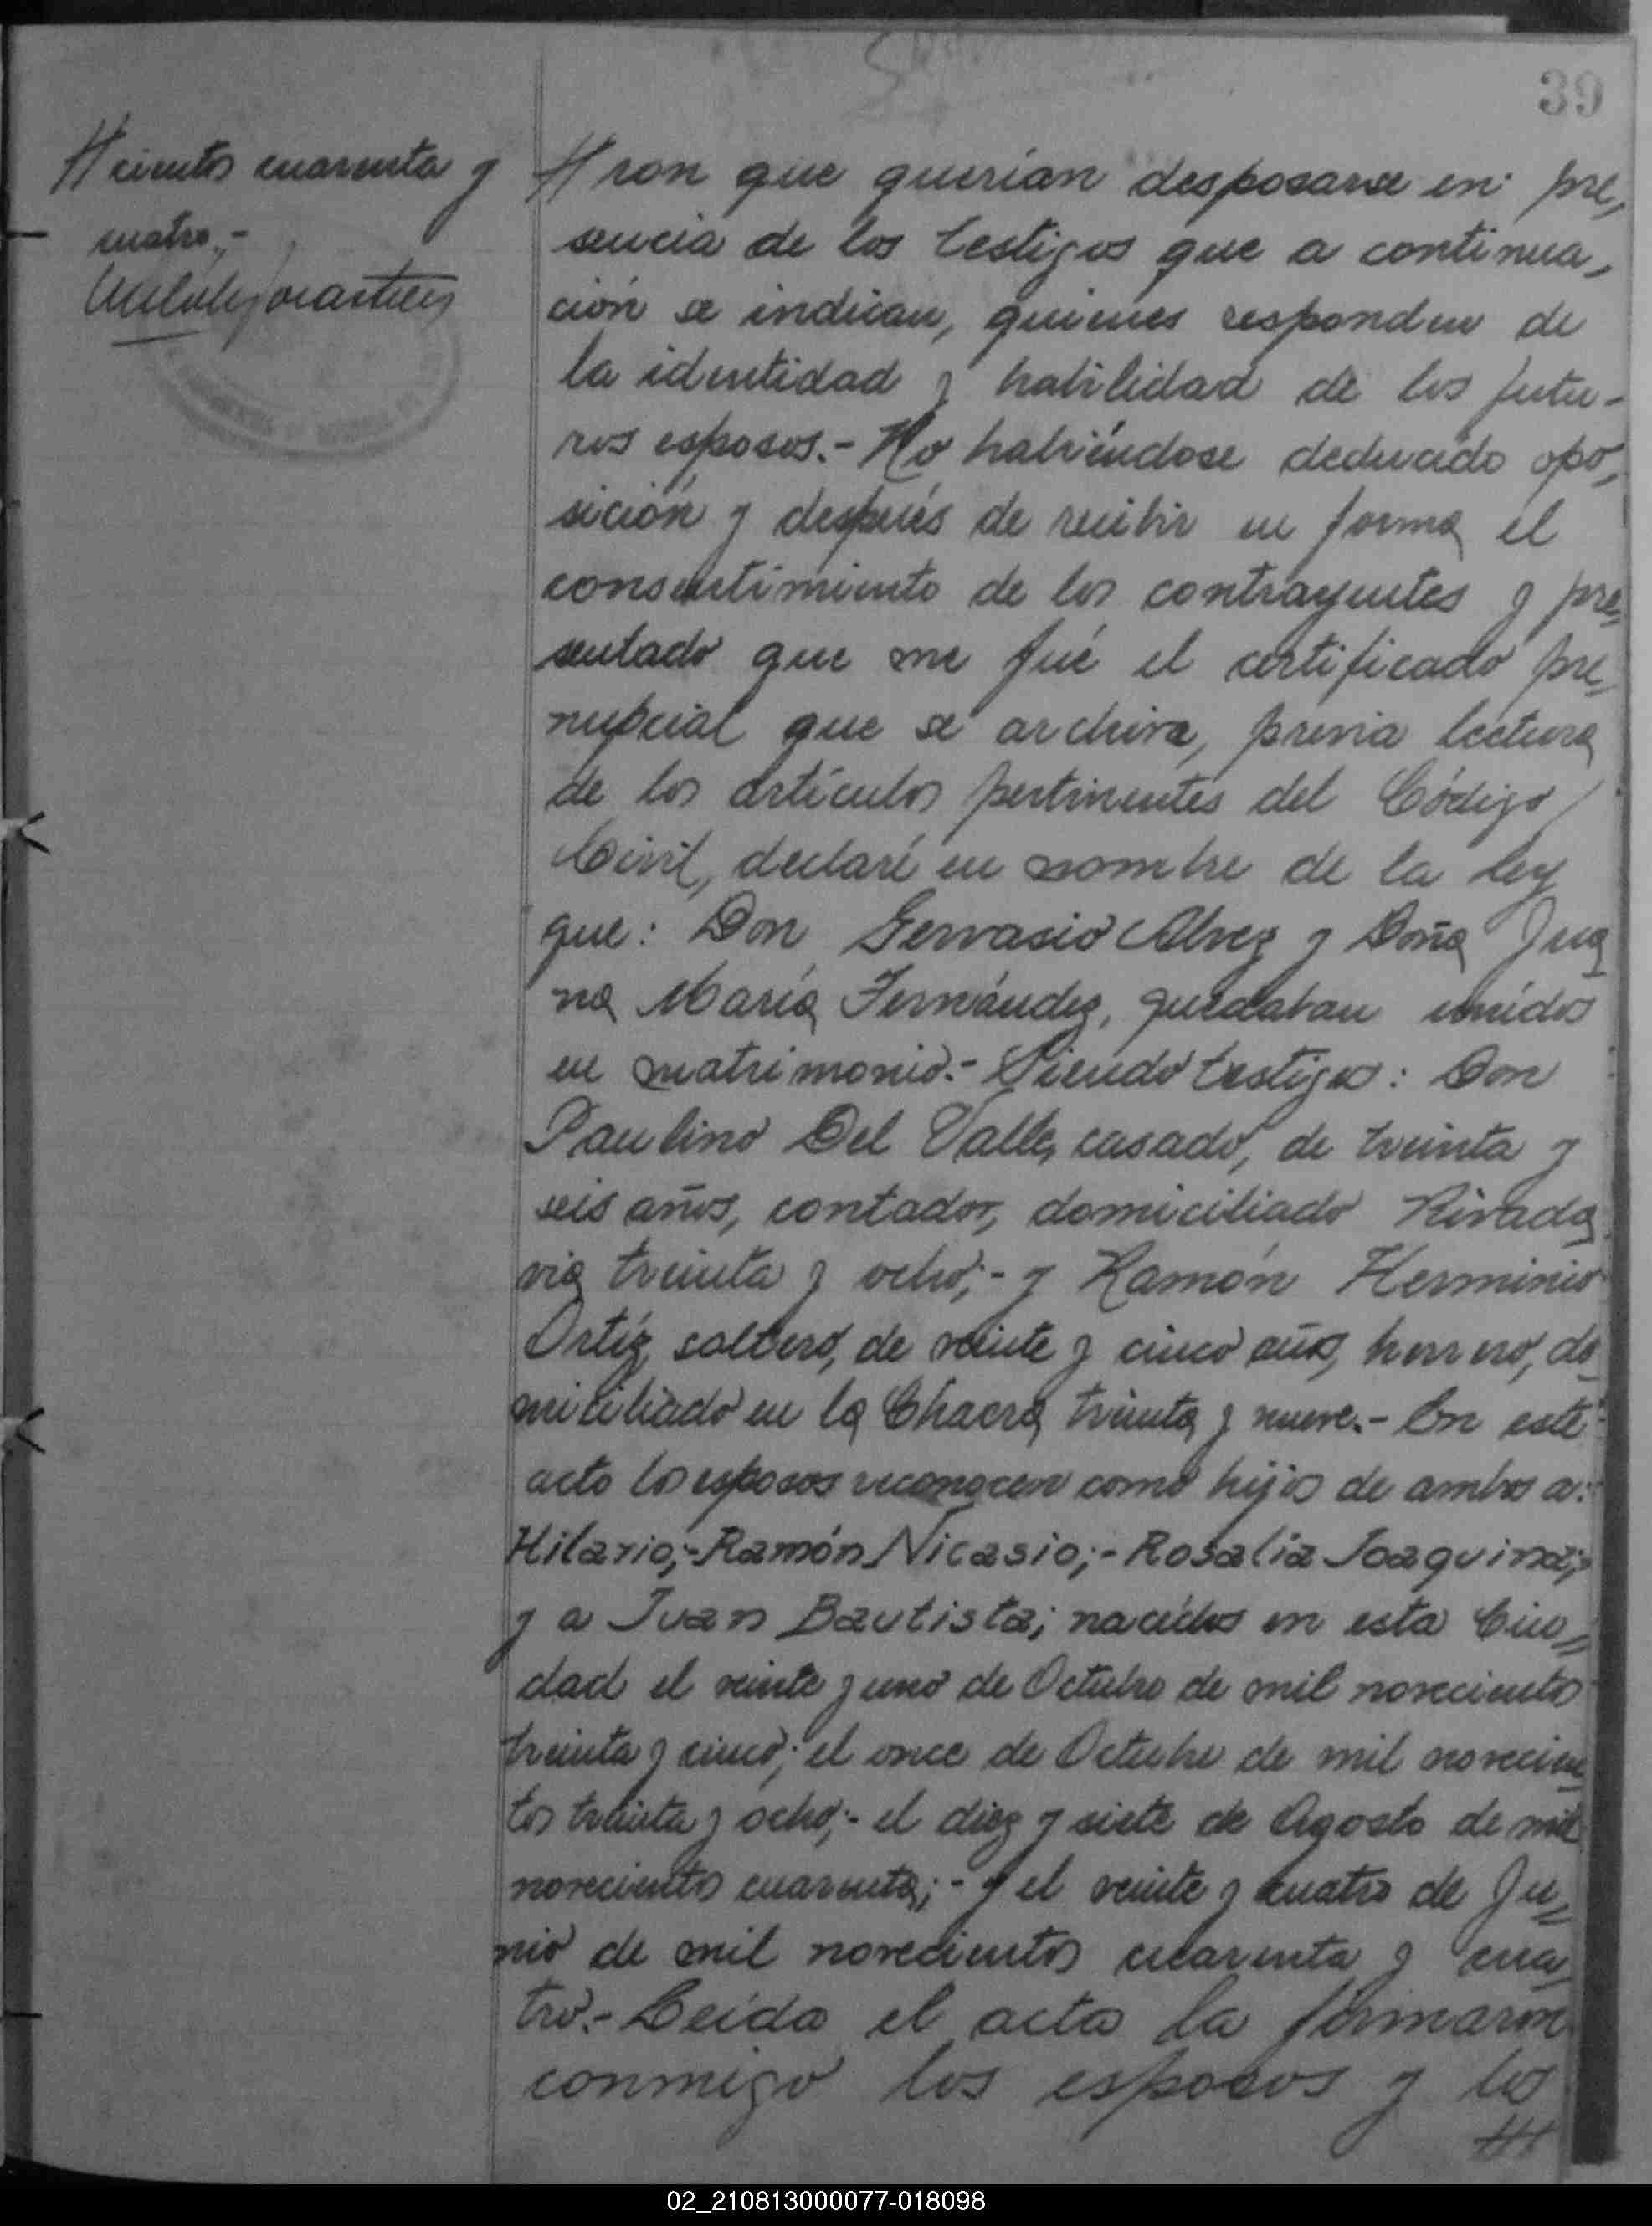 39
// cientos cuarenta y
cuatro.-
// ron que querían desposarse en pre,
sencia de los testigos que a continua,
ción se indican, quienes responden de
la identidad y habilidad de los futu-
ros esposos.- No habiéndose deducido opo,
sición y después de recibir en forma el
consentimiento de los contrayentes y pre,
sentado que me fué el certificado pre,
nupcial que se archiva, previa lectura
de los artículos pertinentes del Código
Civil, declaré en nombre de la ley
que: Don Gervasio Alvez y Doña Jua
na María Fernández, quedaban unidos
en matrimonio.- Siendo testigos: Don
Paulino Del Valle, casado, de treinta y
seis años, contador, domiciliado Rivada
via treinta y ocho;- y Ramón Herminio
Ortíz, soltero, de veinte y cinco años, herrero, do
miciliado en la Chacra treinta y nueve.- En este
acto los esposos reconocen como hijos de ambos a:
Hilario;-Ramón Nicasio;-Rosalía Joaquina;-
y a Juan Bautista; nacidos en esta Ciu,,
dad el veinte y uno de Octubre de mil novecientos
treinta y cinco; el once de Octubre de mil novecien
tos treinta y ocho;- el diez y siete de Agosto de mil
novecientos cuarenta;- y el veinte y cuatro de Ju,,
nio de mil novecientos cuarenta y cua,
tro.- Leída el acta la firmaron
conmigo los esposos y los
//
02_210813000077-018098